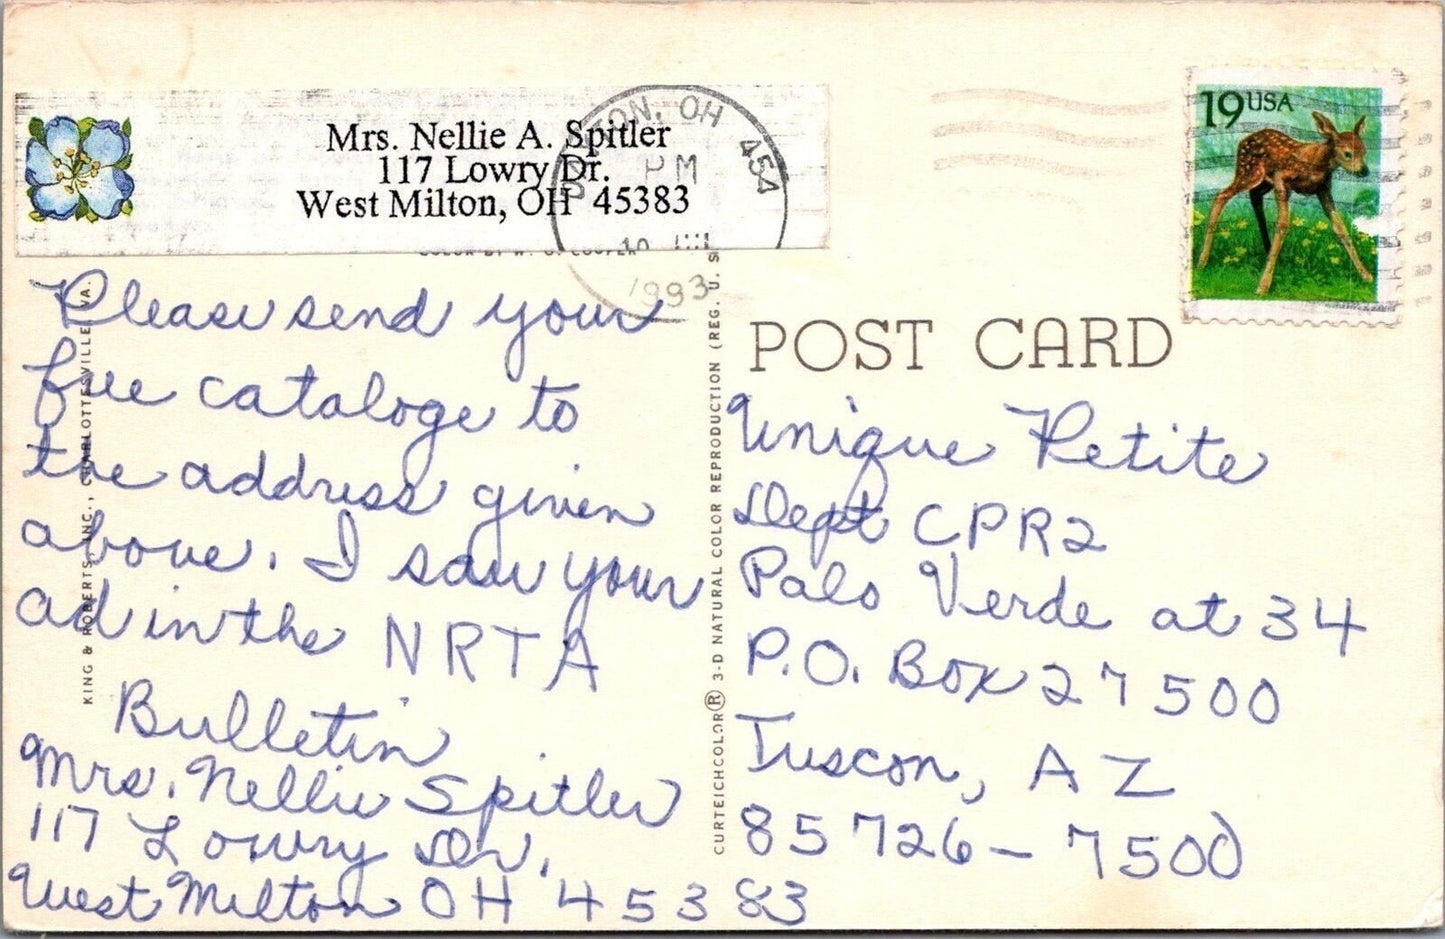 Mrs. Nellie A. Spitler
117 Lowry Dr.
West Milton, OH 45383
TON, OH 454
PM
10 JUL
1993
19 USA
COLOR BY W. G. COOPER
POST CARD
Please send your
free cataloge to
the address given
above. I saw your
ad in the NRTA
Bulletin
Mrs. Nellie Spitler
117 Lowry Dr.
West Milton OH 45383
KING & ROBERTS, INC., CHARLOTTESVILLE, VA.
CURTEICHCOLOR® 3-D NATURAL COLOR REPRODUCTION (REG. U. S.
Unique Petite
Dept CPR2
Palo Verde at 34
P.O. Box 27500
Tuscon, AZ
85726-7500